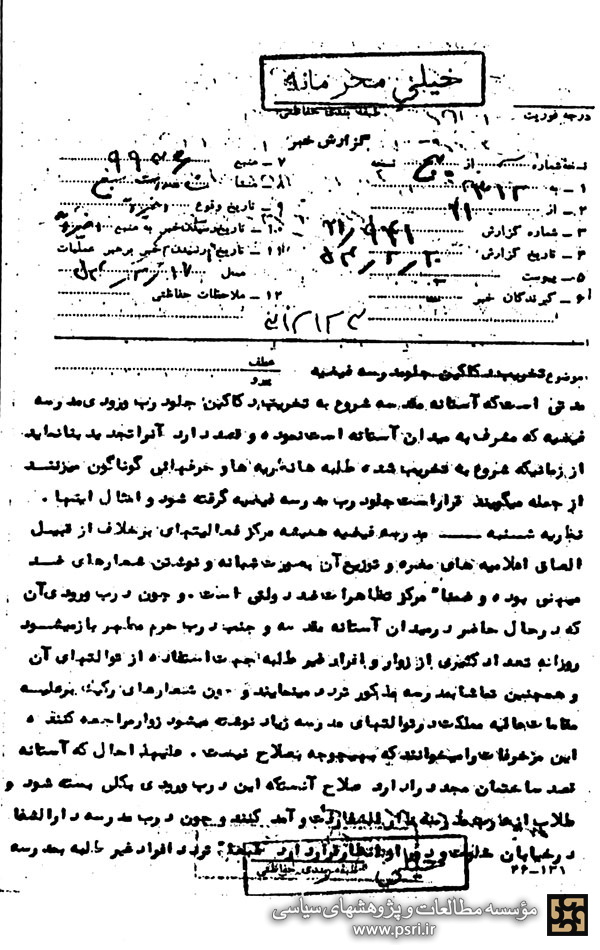 خیلی محرمانه
درجه فوریت
طبقه بندی حفاظتی
گزارش خبر
نسخه شماره از نسخه
۱ ـ به ۳۱۲
۲ ـ از ۲۱
۳ ـ شماره گزارش ۲۱/۹۴۱
۴ ـ تاریخ گزارش
۵ ـ پیوست
۶ ـ گیرندگان خبر
۷ ـ منبع ۹۹۲۶
۸ ـ منشا
۹ ـ تاریخ وقوع
۱۰ ـ تاریخ رسیدن خبر به منبع
۱۱ ـ تاریخ رسیدن خبر برهبر عملیات
محل
۱۲ ـ ملاحظات حفاظتی
موضوع تخریب دکاکین جلو مدرسه فیضیه
عطف
پیرو
مدتی است که آستانه مقدسه شروع به تخریب دکاکین جلو درب ورودی مدرسه
فیضیه که مشرف به میدان آستانه است نموده و قصد دارد آنرا تجدید بنا نماید
از زمانیکه شروع به تخریب شده طلبه ها و حرفهائی گوناگون میزنند
از جمله میگویند قرار است جلو درب مدرسه فیضیه گرفته شود و امثال اینها .
نظریه شنبه ـــ مدرسه فیضیه همیشه مرکز فعالیتهای برخلاف از قبیل
الصاق اعلامیه های مضره و توزیع آن بصورت شبانه و نوشتن شعارهای ضد
میهنی بوده و ضمنا" مرکز تظاهرات ضد دولتی است . و چون درب ورودی آن
که در حال حاضر در میدان آستانه مقدسه و جنب درب حرم مطهر باز میشود
روزانه تعداد کثیری از زوار و افراد غیر طلبه جهت استفاده از توالتهای آن
و همچنین تماشا بمدرسه مذکور تردد مینمایند و چون شعارهای رکیک برعلیه
مقامات عالیه مملکت در توالتهای مدرسه زیاد نوشته میشود زوار مراجعه کننده
این مزخرفات را میخوانند که بهیچوجه بصلاح نیست . علیهذا حال که آستانه
قصد ساختمان مجدد را دارد صلاح آنستکه این درب ورودی بکلی بسته شود و
طلاب از درب مدرسه دارالشفا رفت و آمد کنند و چون درب مدرسه دارالشفا
در خیابان و دور از انظار قرار دارد طبعا" تردد افراد غیر طلبه بمدرسه
خیلی
طبقه بندی حفاظتی
۲۶-۱۳۱
مؤسسه مطالعات و پژوهشهای سیاسی
www.psri.ir